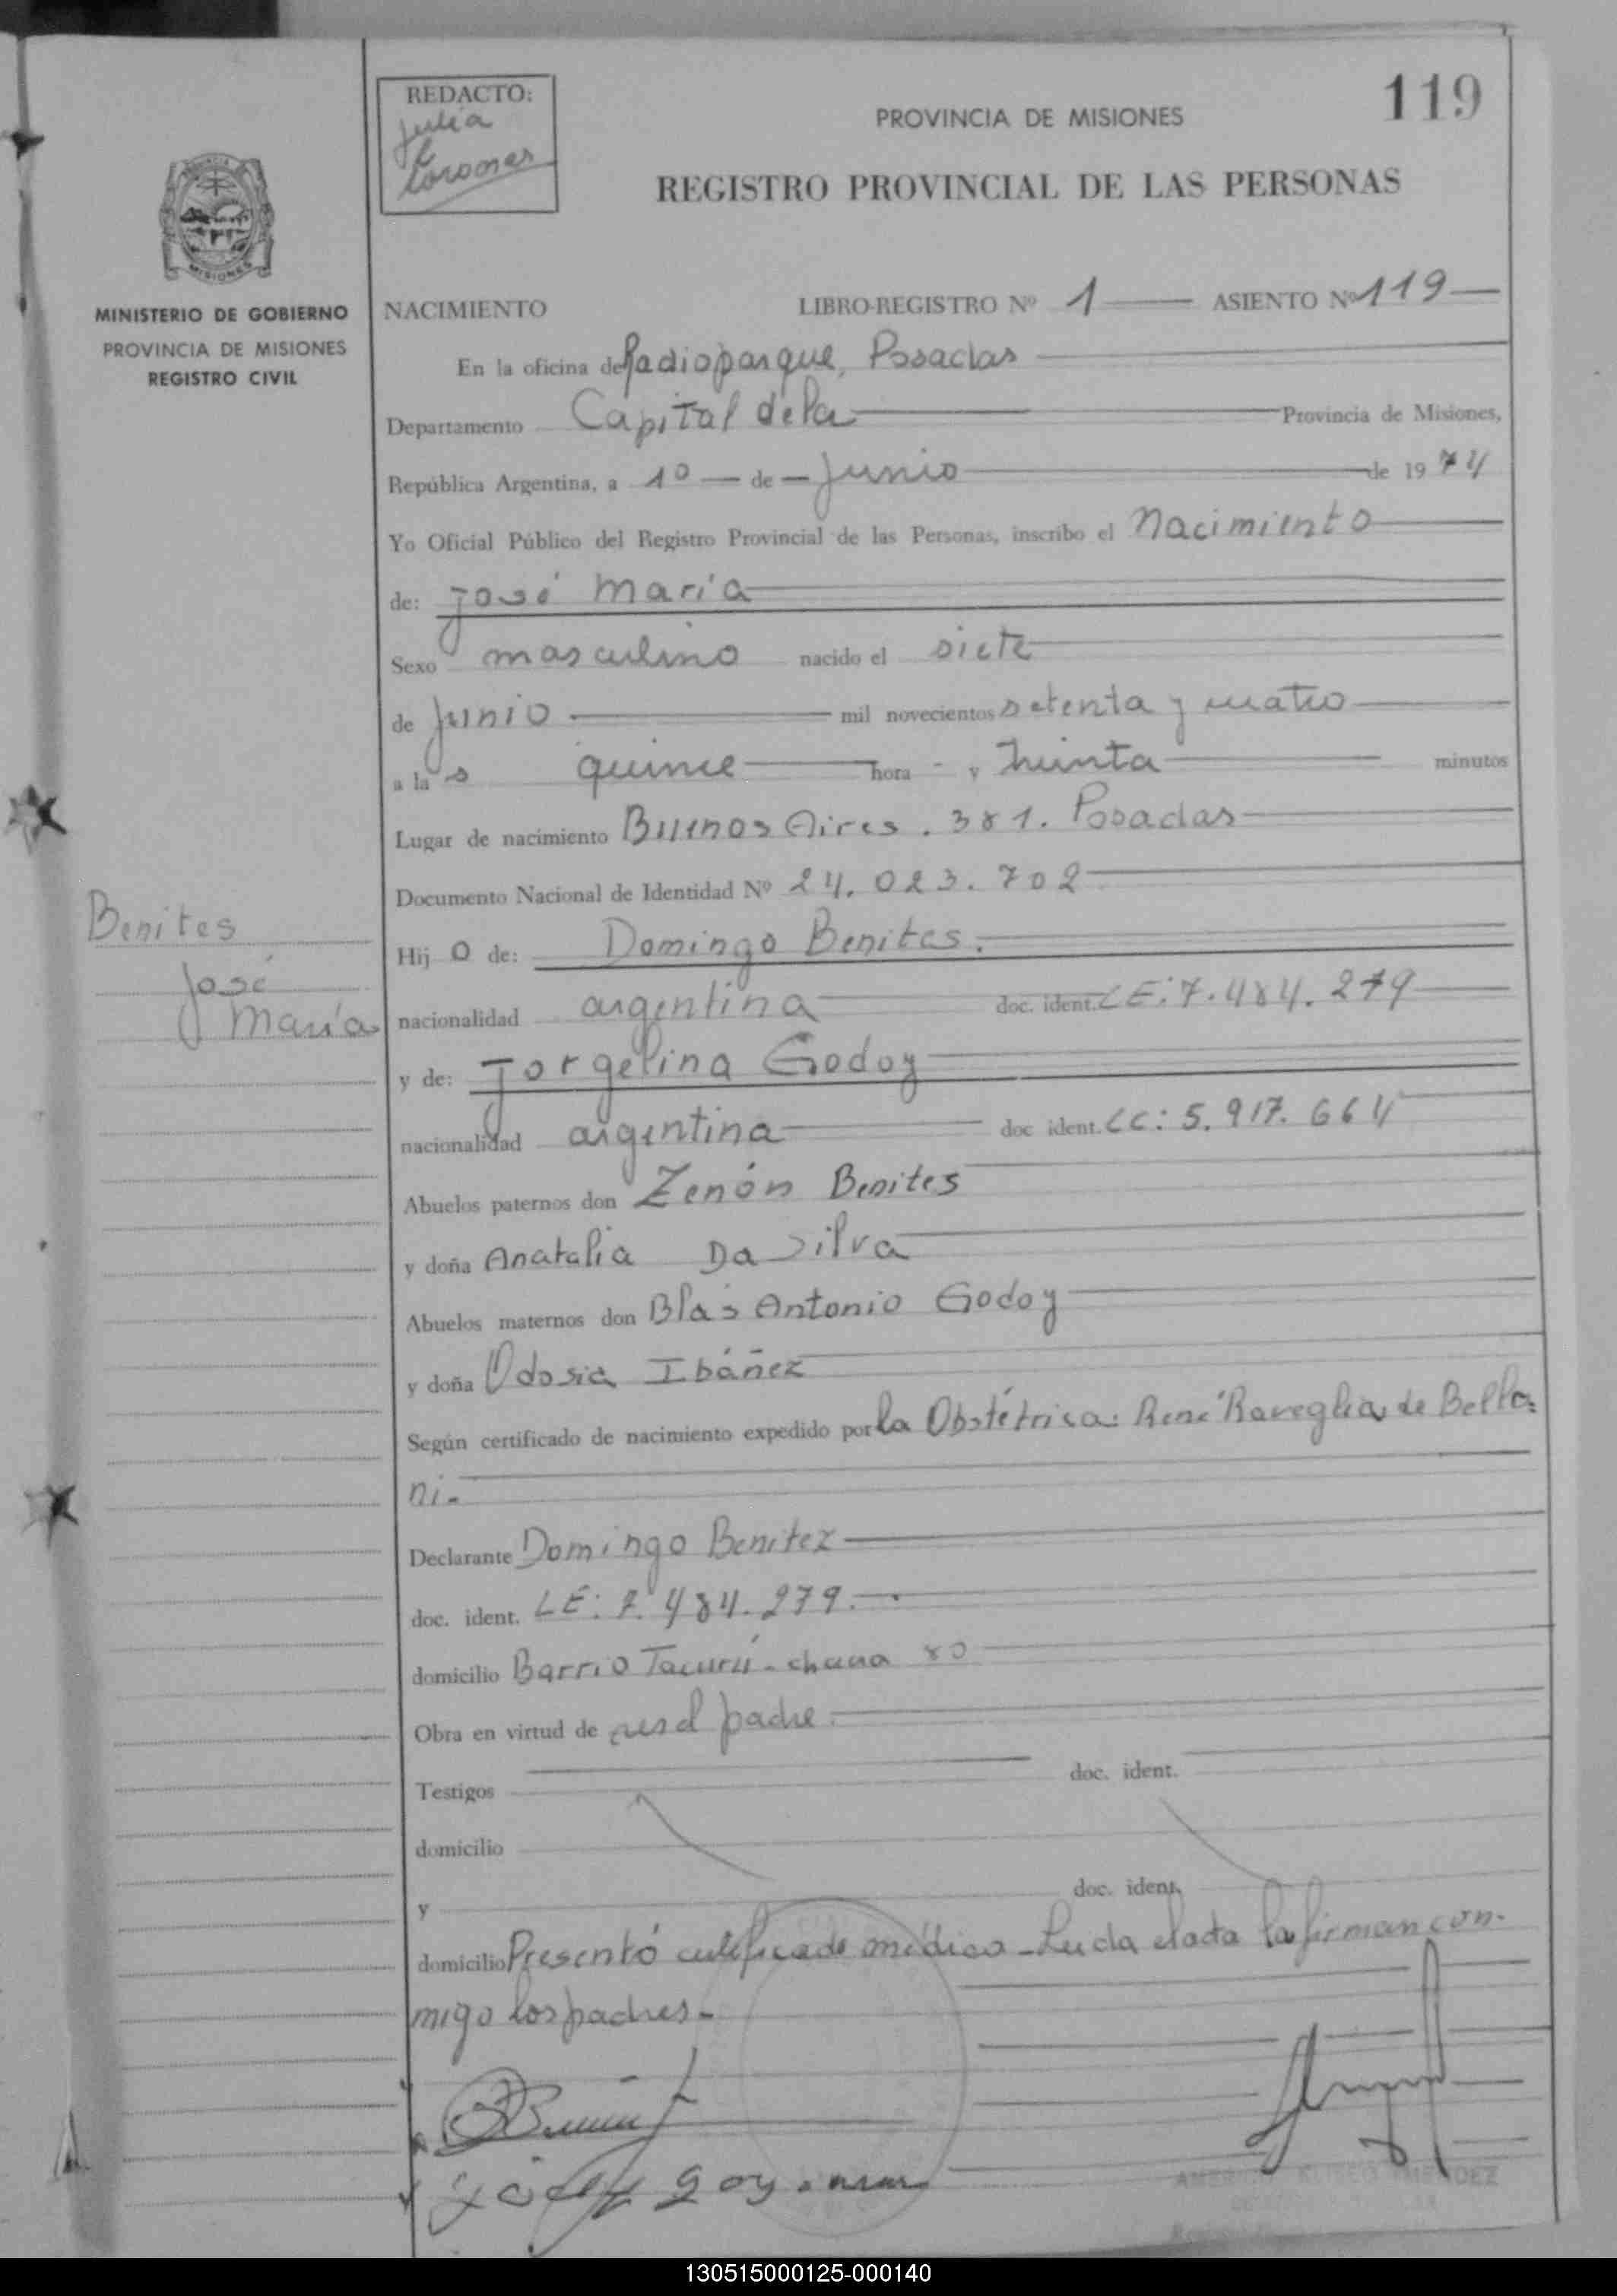 119
REDACTO:
Julia
PROVINCIA DE MISIONES
REGISTRO PROVINCIAL DE LAS PERSONAS
MINISTERIO DE GOBIERNO
PROVINCIA DE MISIONES
REGISTRO CIVIL
NACIMIENTO LIBRO-REGISTRO Nº 1 ASIENTO Nº 119
En la oficina de Radioparque, Posadas
Departamento Capital de la Provincia de Misiones,
República Argentina, a 10 de Junio de 1974
Yo Oficial Público del Registro Provincial de las Personas, inscribo el nacimiento
de: José María
Sexo masculino nacido el siete
de Junio mil novecientos setenta y cuatro
a las quince hora - y treinta minutos
Lugar de nacimiento Buenos Aires. 381. Posadas
Documento Nacional de Identidad Nº 24.023.702
Benites
José
María
Hijo de: Domingo Benites.
nacionalidad argentina doc. ident. LE: 7.484.279
y de: Jorgelina Godoy
nacionalidad argentina doc ident. LC: 5.917.664
Abuelos paternos don Zenón Benites
y doña Anatalia Da Silva
Abuelos maternos don Blas Antonio Godoy
y doña Odosia Ibáñez
Según certificado de nacimiento expedido por la Obstétrica: René Raveglia de Bello
ni-
Declarante Domingo Benitez
doc. ident. LE: 7.484.279.-
domicilio Barrio Tacurú - chacra 80
Obra en virtud de ser el padre.
Testigos doc. ident.
domicilio
y doc. ident.
domicilio Presentó certificado médico - Leida el acta la firman con-
migo los padres-
130515000125-000140